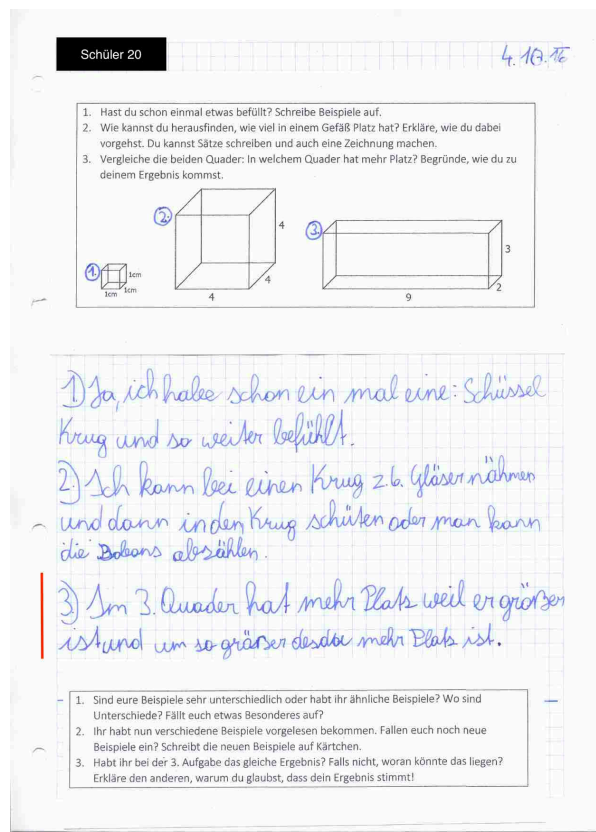 Schüler 20
4.10.16
1. Hast du schon einmal etwas befüllt? Schreibe Beispiele auf.
2. Wie kannst du herausfinden, wie viel in einem Gefäß Platz hat? Erkläre, wie du dabei
vorgehst. Du kannst Sätze schreiben und auch eine Zeichnung machen.
3. Vergleiche die beiden Quader: In welchem Quader hat mehr Platz? Begründe, wie du zu
deinem Ergebnis kommst.
1. 1cm 1cm 1cm
2. 4 4 4
3. 3 2 9
1) Ja, ich habe schon ein mal eine: Schüssel
Krug und so weiter befühlt.
2.) Ich kann bei einen Krug z.b. Gläser nähmen
und dann in den Krug schüten oder man kann
die abzählen.
3.) Im 3. Quader hat mehr Platz weil er größer
ist und um so größer mehr Platz ist.
1. Sind eure Beispiele sehr unterschiedlich oder habt ihr ähnliche Beispiele? Wo sind
Unterschiede? Fällt euch etwas Besonderes auf?
2. Ihr habt nun verschiedene Beispiele vorgelesen bekommen. Fallen euch noch neue
Beispiele ein? Schreibt die neuen Beispiele auf Kärtchen.
3. Habt ihr bei der 3. Aufgabe das gleiche Ergebnis? Falls nicht, woran könnte das liegen?
Erkläre den anderen, warum du glaubst, dass dein Ergebnis stimmt!